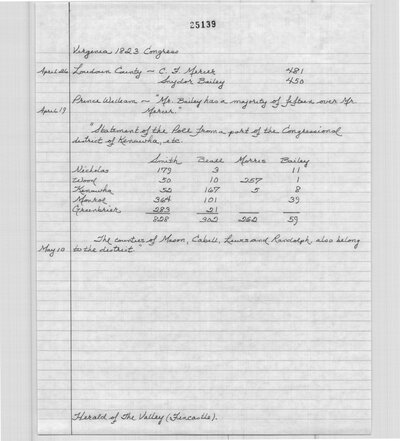 25139
Virginia 1823 Congress
April 26 Loudoun County ~ C. F. Mercer 481
Snydor Bailey 450
Prince William ~ "Mr. Bailey has a majority of fifteen over Mr
April 19 Mercer."
"Statement of the Poll from a part of the Congressional
district of Kanawha, etc.
Smith Beall Morris Bailey
Nicholas 179 3 11
Wood 50 10 257 1
Kanawha 52 167 5 8
Monroe 364 101 39
Greenbrier 283 21
828 302 262 59
The counties of Mason, Cabell, Lewis and Randolph, also belong
May 10 to the district."
Herald of The Valley (Fincastle).